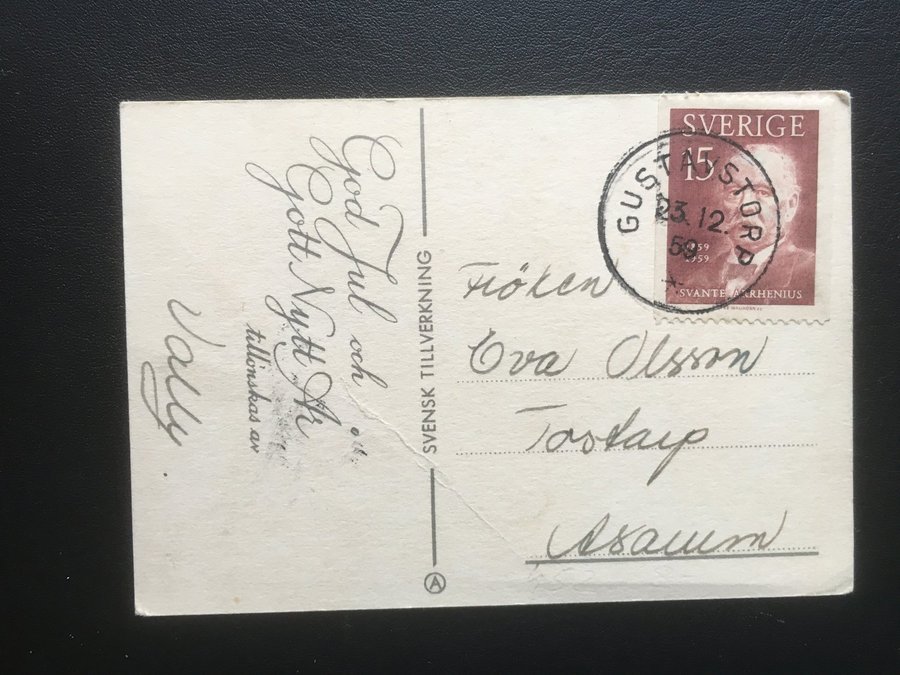 God Jul och
Gott Nytt År
tillönskas av
Vally.
SVENSK TILLVERKNING
A
SVERIGE
15
1859
1959
SVANTE ARRHENIUS
GUSTAVSTORP
23.12.
59
Fröken
Eva Olsson
Tostarp
Asarum